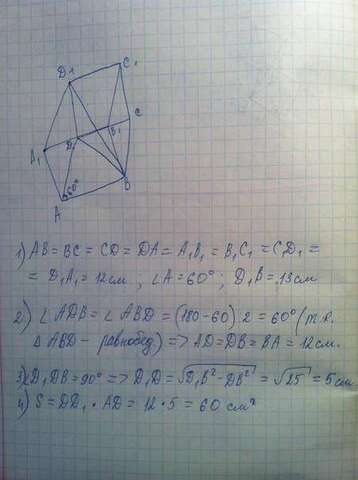 D1
C1
A1
D
B1
C
60°
A
B
1) AB = BC = CD = DA = A1B1 = B1C1 = C1D1 =
= D1A1 = 12см ; ∠A = 60° ; D1B = 13см
2) ∠ADB = ∠ABD = (180-60) 2 = 60° (т.к.
Δ ABD - равнобед) => AD = DB = BA = 12см.
3) ∠D1DB = 90° => D1D = √D1B² - DB² = √25 = 5см
4) S = DD1 · AD = 12 · 5 = 60 см²